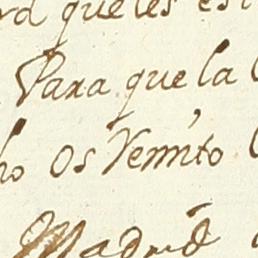 que les es
Para que la
ho os Vemito
Madrid